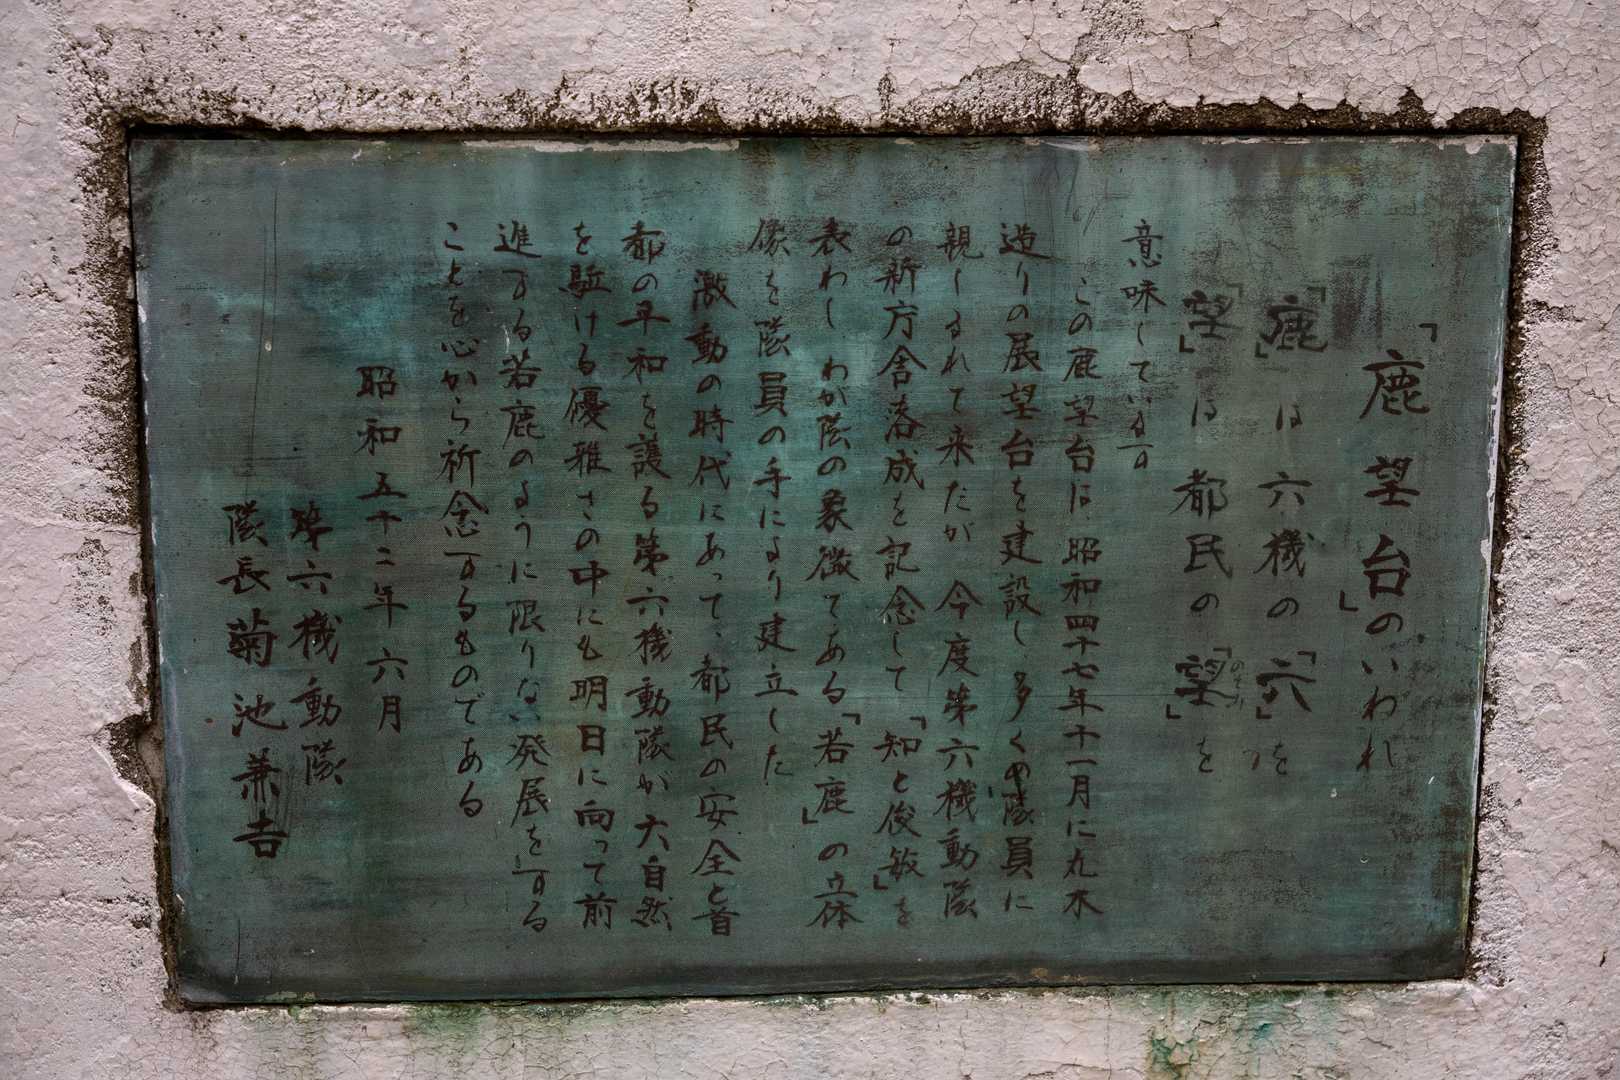 「鹿望台」のいわれ
「鹿」は六機の「六」を
「望」は都民の「望」を
のぞみ
意味している
この鹿望台は、昭和四十七年十一月に丸木
造りの展望台を建設し多くの隊員に
親しまれて来たが今度第六機動隊
の新庁舎落成を記念して「知と俊敏」を
表わしわが隊の象徴である「若鹿」の立体
像を隊員の手により建立した
激動の時代にあって、都民の安全と首
都の平和を護る第六機動隊が大自然
を駈ける優雅さの中にも明日に向って前
進する若鹿のように限りない発展をする
ことを心から祈念するものである
昭和五十二年六月
第六機動隊
隊長菊池兼吉